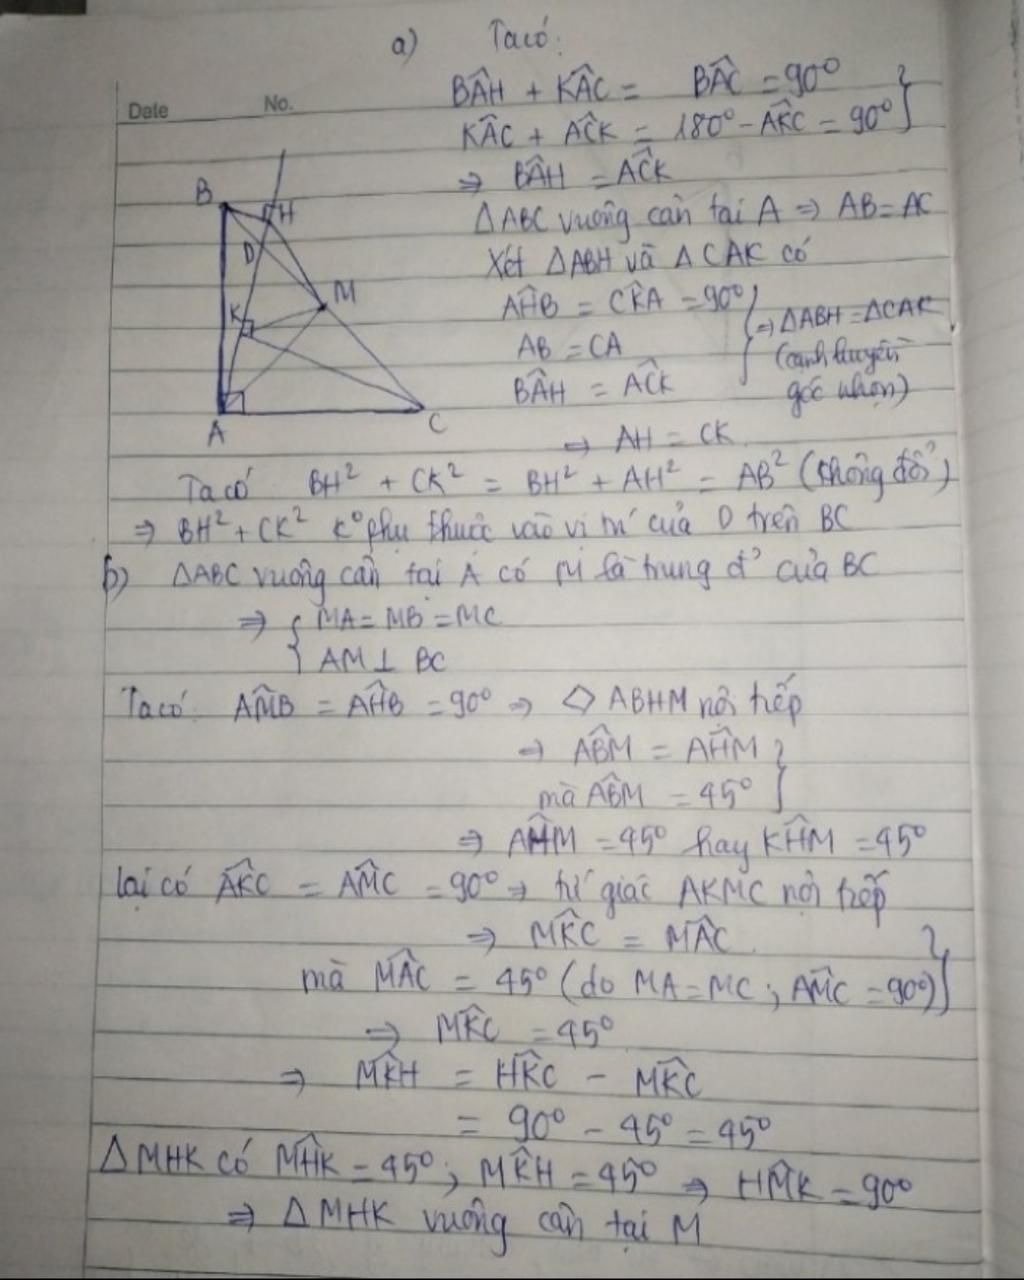 a) Ta có:
BÂH + KÂC = BÂC = 90°
Date No.
KÂC + AĈK = 180° - AK̂C = 90° }
⇒ BÂH = AĈK
B H D M K A C
ΔABC vuông cân tại A ⇒ AB = AC
Xét ΔABH và ΔCAK có
AĤB = CK̂A = 90°
AB = CA
BÂH = AĈK
} ⇒ ΔABH = ΔCAK
(cạnh huyền
góc nhọn)
⇒ AH = CK
Ta có BH² + CK² = BH² + AH² = AB² (không đổi)
⇒ BH² + CK² k° phụ thuộc vào vị trí của D trên BC
b) ΔABC vuông cân tại A có M là trung đ' của BC
⇒ { MA = MB = MC
AM ⊥ BC
Ta có: AM̂B = AĤB = 90° ⇒ ◇ ABHM nội tiếp
⇒ AB̂M = AĤM }
mà AB̂M = 45°
⇒ AĤM = 45° hay KĤM = 45°
lại có AK̂C = AM̂C = 90° ⇒ tứ giác AKMC nội tiếp
⇒ MK̂C = MÂC }
mà MÂC = 45° (do MA = MC ; AM̂C = 90°)
⇒ MK̂C = 45°
⇒ MK̂H = HK̂C - MK̂C
= 90° - 45° = 45°
ΔMHK có MĤK = 45° ; MK̂H = 45° ⇒ HM̂K = 90°
⇒ ΔMHK vuông cân tại M